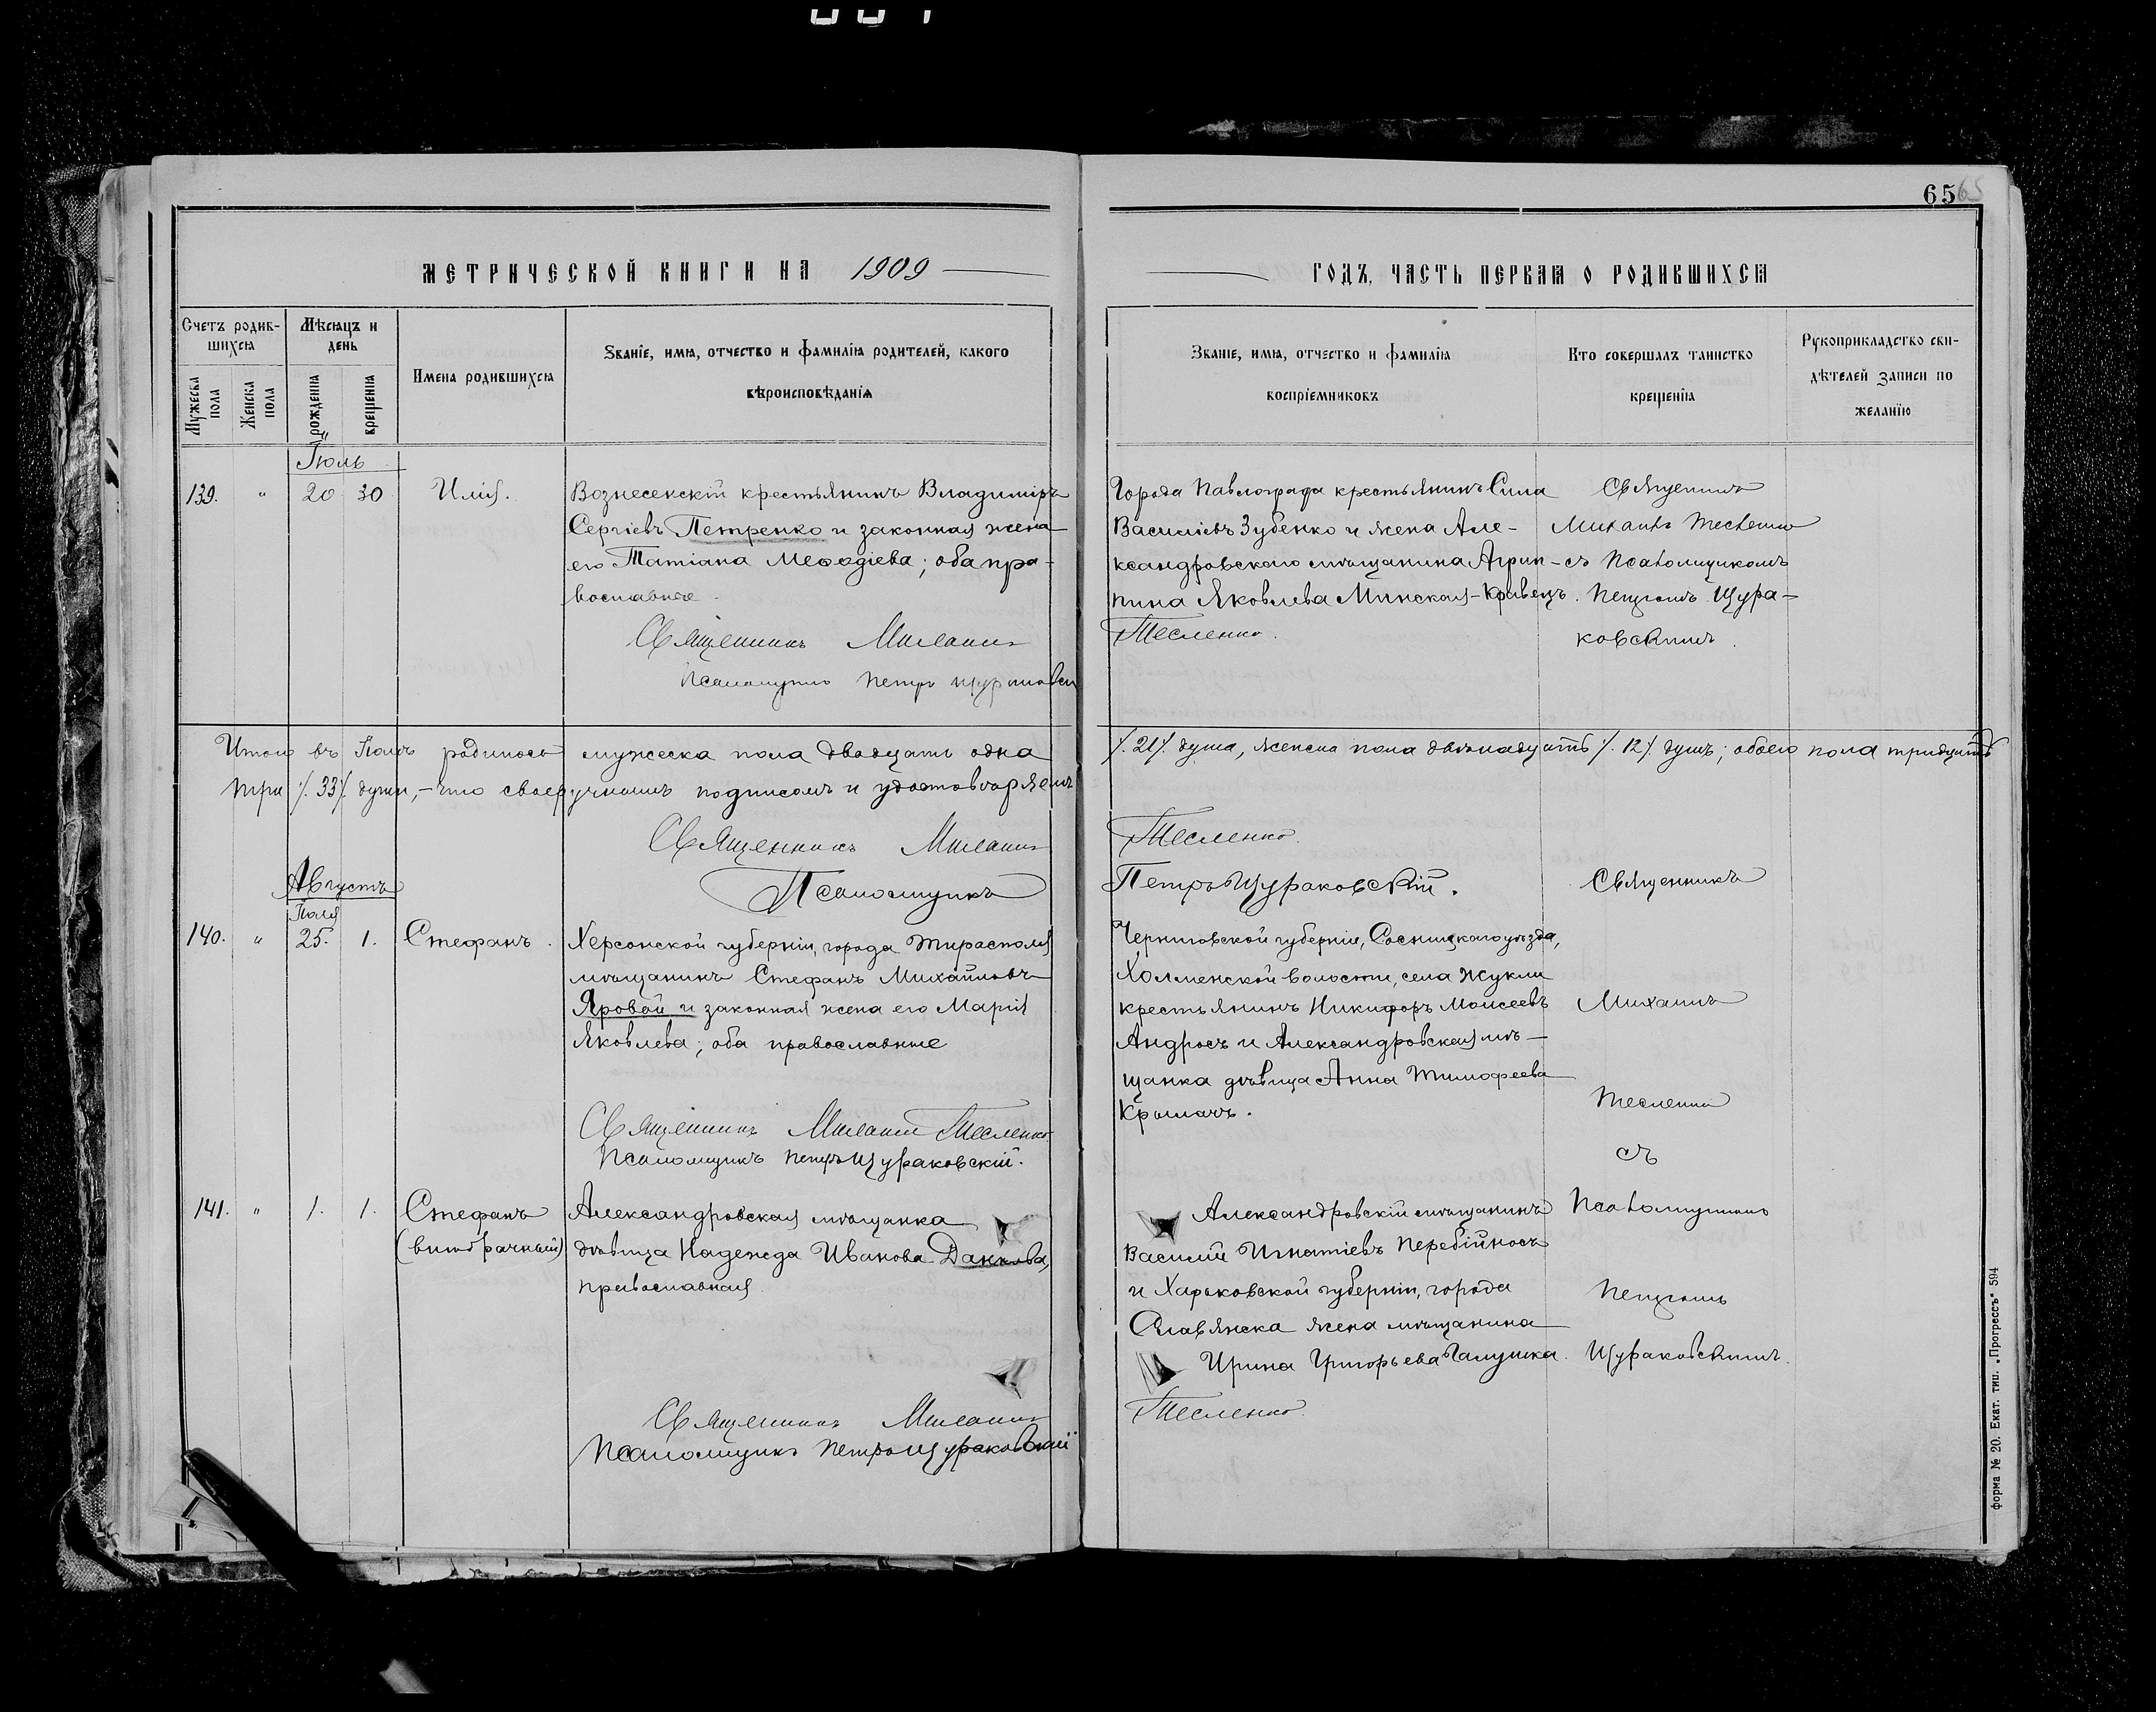 65
МЕТРИЧЕСКОЙ КНИГИ НА 1909
ГОДЪ, ЧАСТЬ ПЕРВАЯ О РОДИВШИХСЯ
Счетъ родив-
шихся
Мужеска пола
Женска пола
Мѣсяцъ и
день
рожденія
крещенія
Имена родившихся
Званіе, имя, отчество и фамилія родителей, какого
вѣроисповѣданія
Званіе, имя, отчество и фамилія
воспріемниковъ
Кто совершалъ таинство
крещенія
Рукоприкладство сви-
дѣтелей записи по
желанію
Іюль
139. " 20 30 Илія.
Вознесенскій крестьянинъ Владиміръ
Сергіевъ Петренко и законная жена
его Татіана Меѳодіева; оба пра-
вославные.
Священникъ Михаилъ
Псаломщикъ Петръ Щураковскій
Города Павлограда крестьянинъ Сила
Василіевъ Зубенко и жена Але-
ксандровскаго мѣщанина Агрип-
пина Яковлева Минская-Кравецъ.
Тесленко.
Священникъ
Михаилъ Тесленко
съ Псаломщикомъ
Петромъ Щура-
ковскимъ.
Итого въ Іюлѣ родилось мужеска пола двадцать одна /.21/. душа, женска пола двѣнадцать /.12/. душъ; обоего пола тридцать
три /.33/. души, – что своеручнымъ подписомъ и удостовѣряемъ
Священникъ Михаилъ Тесленко.
Псаломщикъ Петръ Щураковскій.
Августъ
Іюля
140. " 25. 1. Стефанъ.
Херсонской губерніи, города Тирасполя
мѣщанинъ Стефанъ Михайловъ
Яровой и законная жена его Марія
Яковлева; оба православные
Священникъ Михаилъ Тесленко
Псаломщикъ Петръ Щураковскій.
Черниговской губерніи, Сосницкаго уѣзда,
Холменской волости, села Жукли
крестьянинъ Никифоръ Моисеевъ
Андросъ и Александровская мѣ-
щанка дѣвица Анна Тимофеева
141. " 1. 1. Стефанъ
(внѣбрачный)
Александровская мѣщанка
дѣвица Надежда Иванова Данкова,
православная
Священникъ Михаилъ
Псаломщикъ Петръ Щураковскій
Александровскій мѣщанинъ
Василій Игнатіевъ Перебійносъ
и Харьковской губерніи, города
Славянска жена мѣщанина
Ирина Григорьева Галушка.
Тесленко.
Священникъ
Михаилъ
Тесленко
съ
Псаломщикомъ
Петромъ
Щураковскимъ.
Форма № 20. Екат. тип. „Прогрессъ“ 594